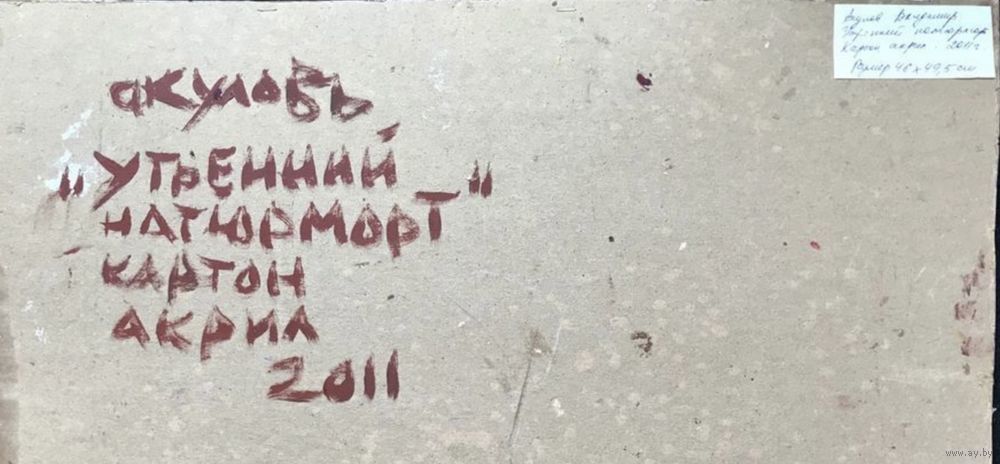 акуловъ
„УТРЕННИЙ
НАТЮРМОРТ"
КАРТОН
АКРИЛ
2011
Акулов Владимир
Утренний натюрморт
Картон акрил. 2011г
Размер 46 х 49,5 см
www.ay.by